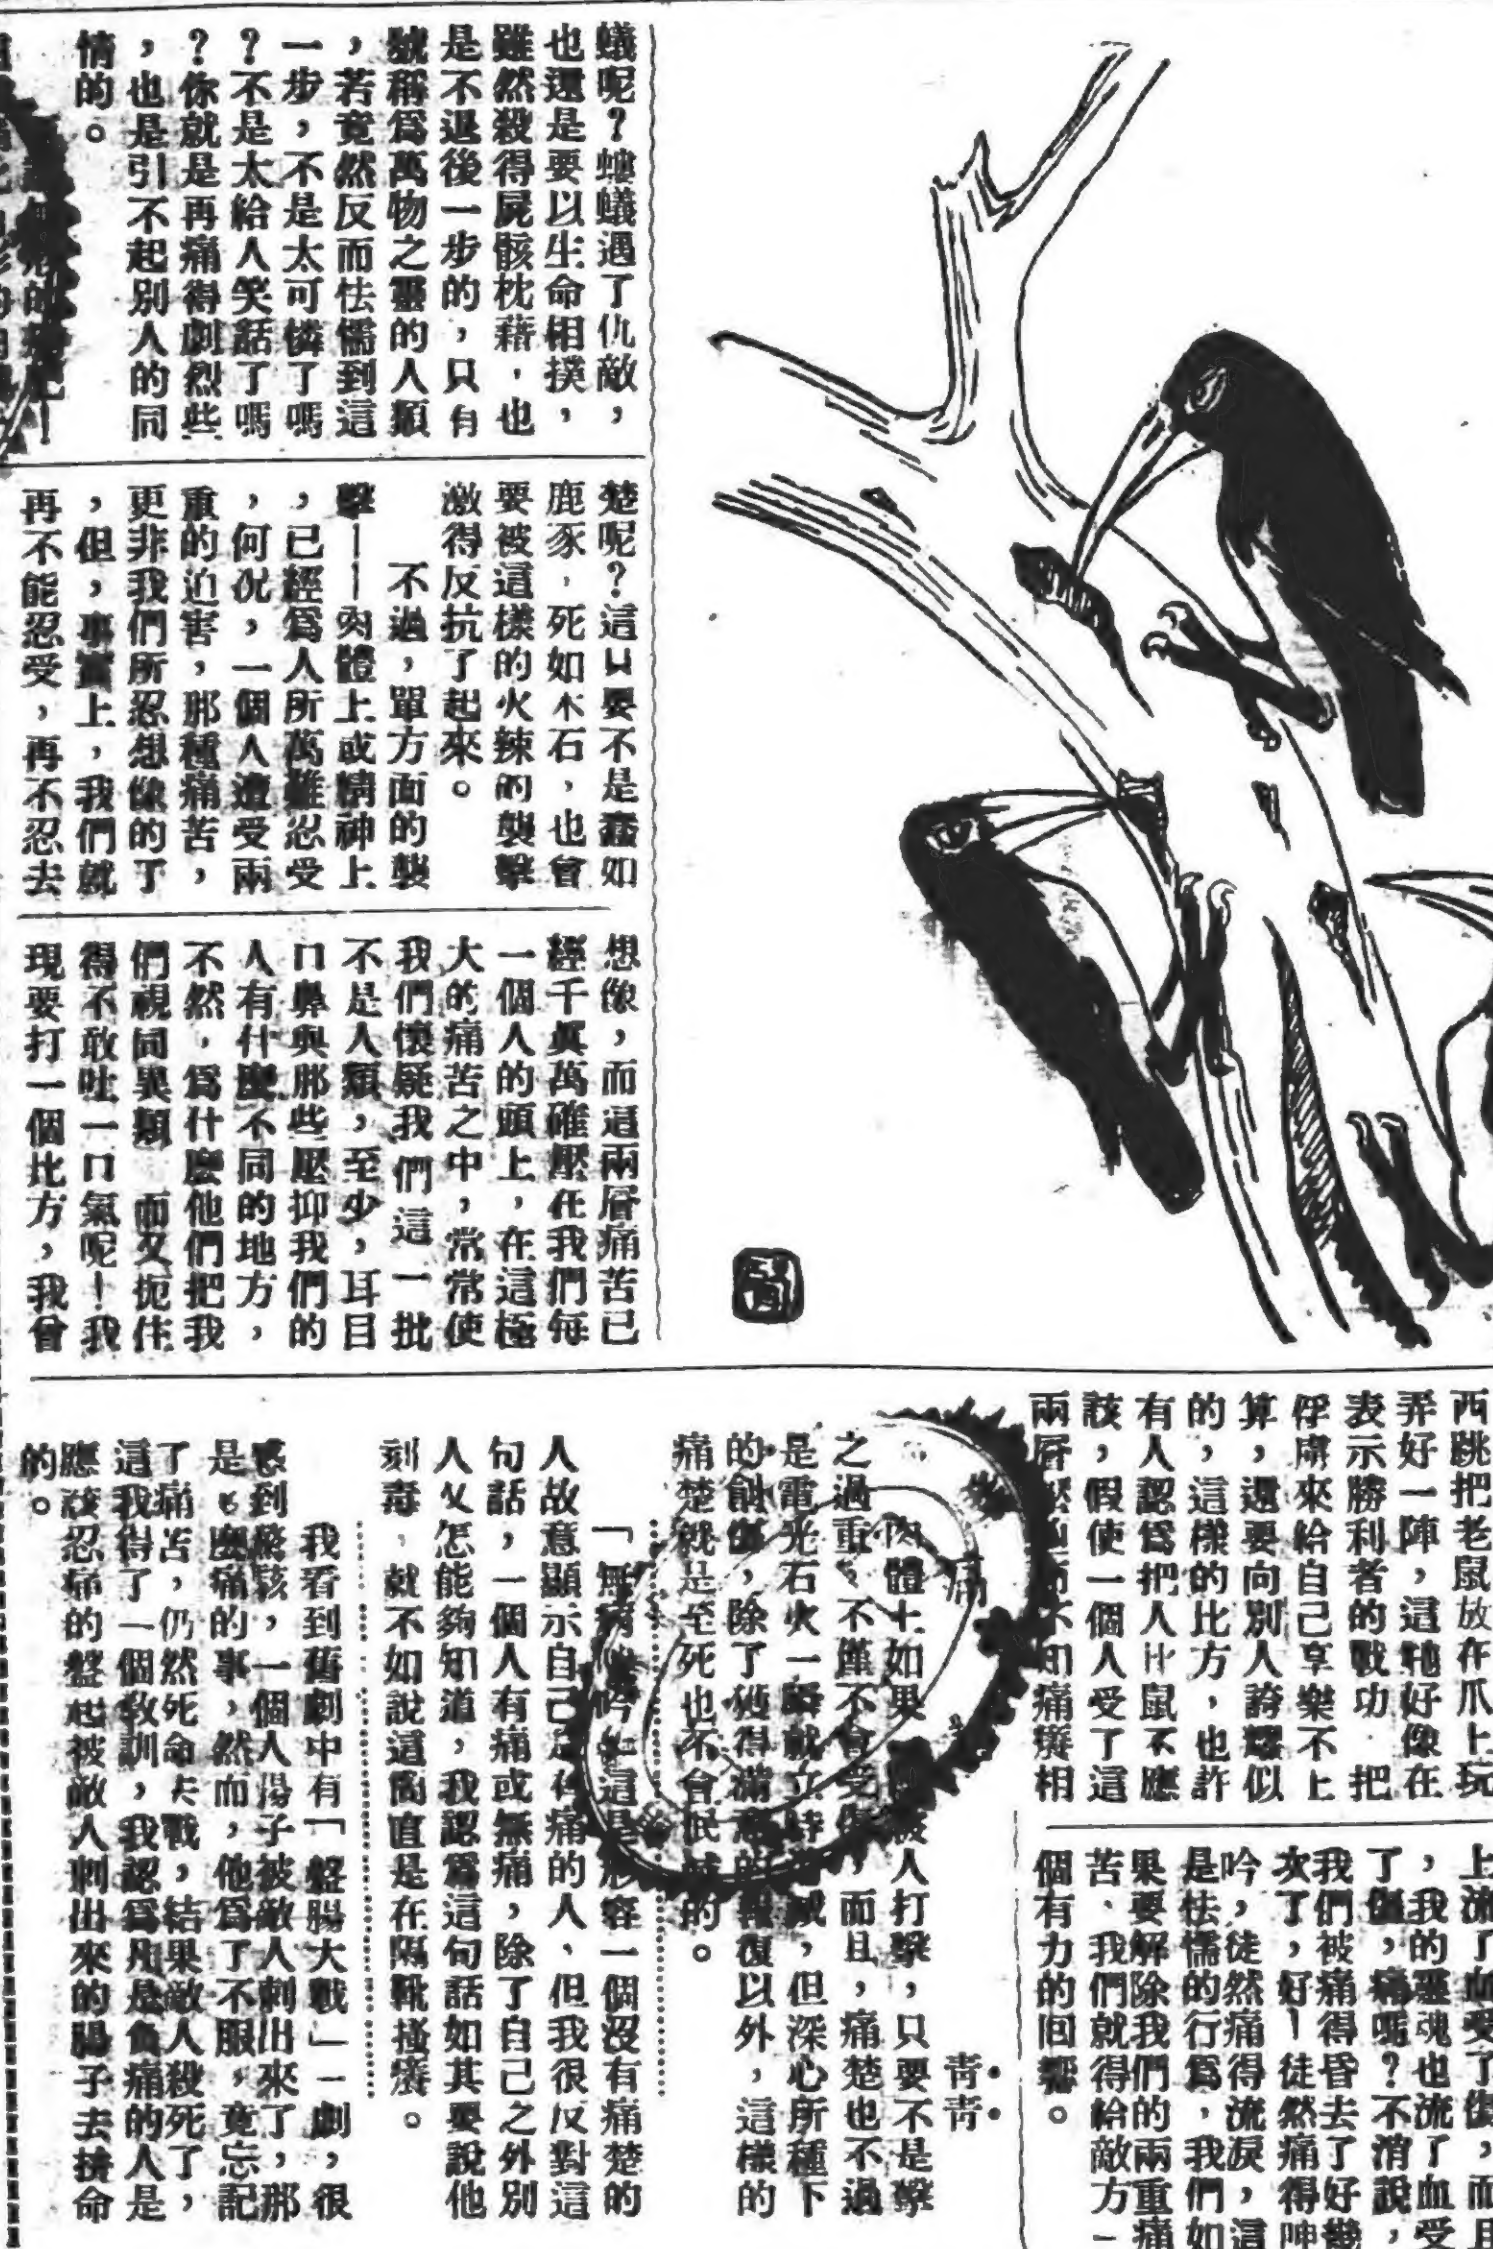 蟻呢？螻蟻遇了仇敵，
也還是要以生命相撲，
雖然殺得屍骸枕藉，也
是不退後一步的，只有
號稱爲萬物之靈的人類
，若竟然反而怯懦到這
一步，不是太可憐了嗎
？不是太給人笑話了嗎
？你就是再痛得劇烈些
，也是引不起別人的同
情的。
楚呢？這只要不是蠢如
鹿豕，死如木石，也會
要被這樣的火辣的襲擊
激得反抗了起來。
不過，單方面的襲
擊——肉體上或精神上
，已經爲人所萬難忍受
，何況，一個人遭受兩
重的迫害，那種痛苦，
更非我們所忍想像的了
，但，事實上，我們就
再不能忍受，再不忍去
想像，而這兩層痛苦已
經千眞萬確壓在我們每
一個人的頭上，在這極
大的痛苦之中，常常使
我們懷疑我們這一批
不是人類，至少，耳目
口鼻與那些壓抑我們的
人有什麼不同的地方，
不然，爲什麼他們把我
們視同異類 而又扼住
得不敢吐一口氣呢！我
現要打一個比方，我曾
西跳把老鼠放在爪上玩
弄好一陣，這牠好像在
表示勝利者的戰功，把
俘虜來給自己享樂不上
算，還要向別人誇耀似
的，這樣的比方，也許
有人認爲把人比鼠不應
該，假使一個人受了這
兩層壓迫而不知痛癢相
上流了血受了傷，而且
，我的靈魂也流了血受
了傷，痛嗎？不消說，
我們被痛得昏去了好幾
次了，好！徒然痛得呻
吟，徒然痛得流淚，這
是怯懦的行爲，我們如
果要解除我們的兩重痛
苦，我們就得給敵方一
個有力的回響。
痛
青青
肉體上如果 被人打擊，只要不是擊
之過重，不僅不會受傷，而且，痛楚也不過
是雷光石火一瞬就立時 滅，但深心所種下
的創傷，除了獲得滿意的報復以外，這樣的
痛楚就是至死也不會泯滅的。
「無病呻吟」這是形容一個沒有痛楚的
人故意顯示自己是有痛的人，但我很反對這
句話，一個人有痛或無痛，除了自己之外別
人又怎能夠知道，我認爲這句話如其要說他
刻毒，就不如說這簡直是在隔靴搔癢。
我看到舊劇中有「盤腸大戰」一劇，很
感到驚駭，一個人腸子被敵人刺出來了，那
是多麼痛的事，然而，他爲了不服，竟忘記
了痛苦，仍然死命大戰，結果敵人殺死了，
這我得了一個敎訓，我認爲凡是負痛的人是
應該忍痛的盤起被敵人刺出來的腸子去拚命
的。